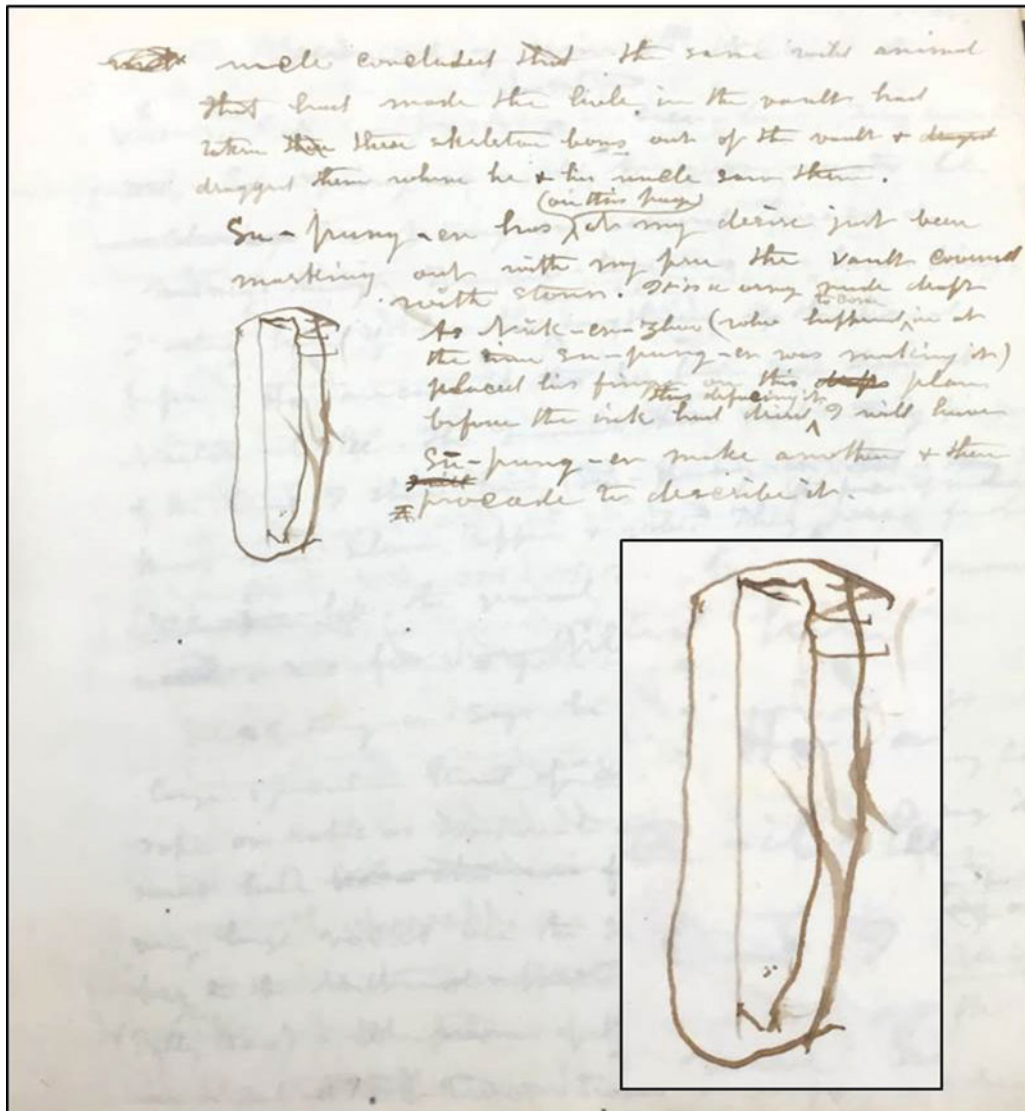 uncle concluded that the same wild animal
that had made the hole in the vault had
taken these skeleton bones out of the vault & dragged
dragged them where he & his uncle saw them.
(on this page)
Su-pung-er has at my desire just been
marking out with my pen the vault covered
with stones. It is a very rude draft
to come
As Nuk-er-zhoo (who happened in at
the time Su-pung-er was making it)
placed his finger on this plan
thus defacing it
before the ink had dried I will have
Su-pung-er make another & then
procede to describe it.